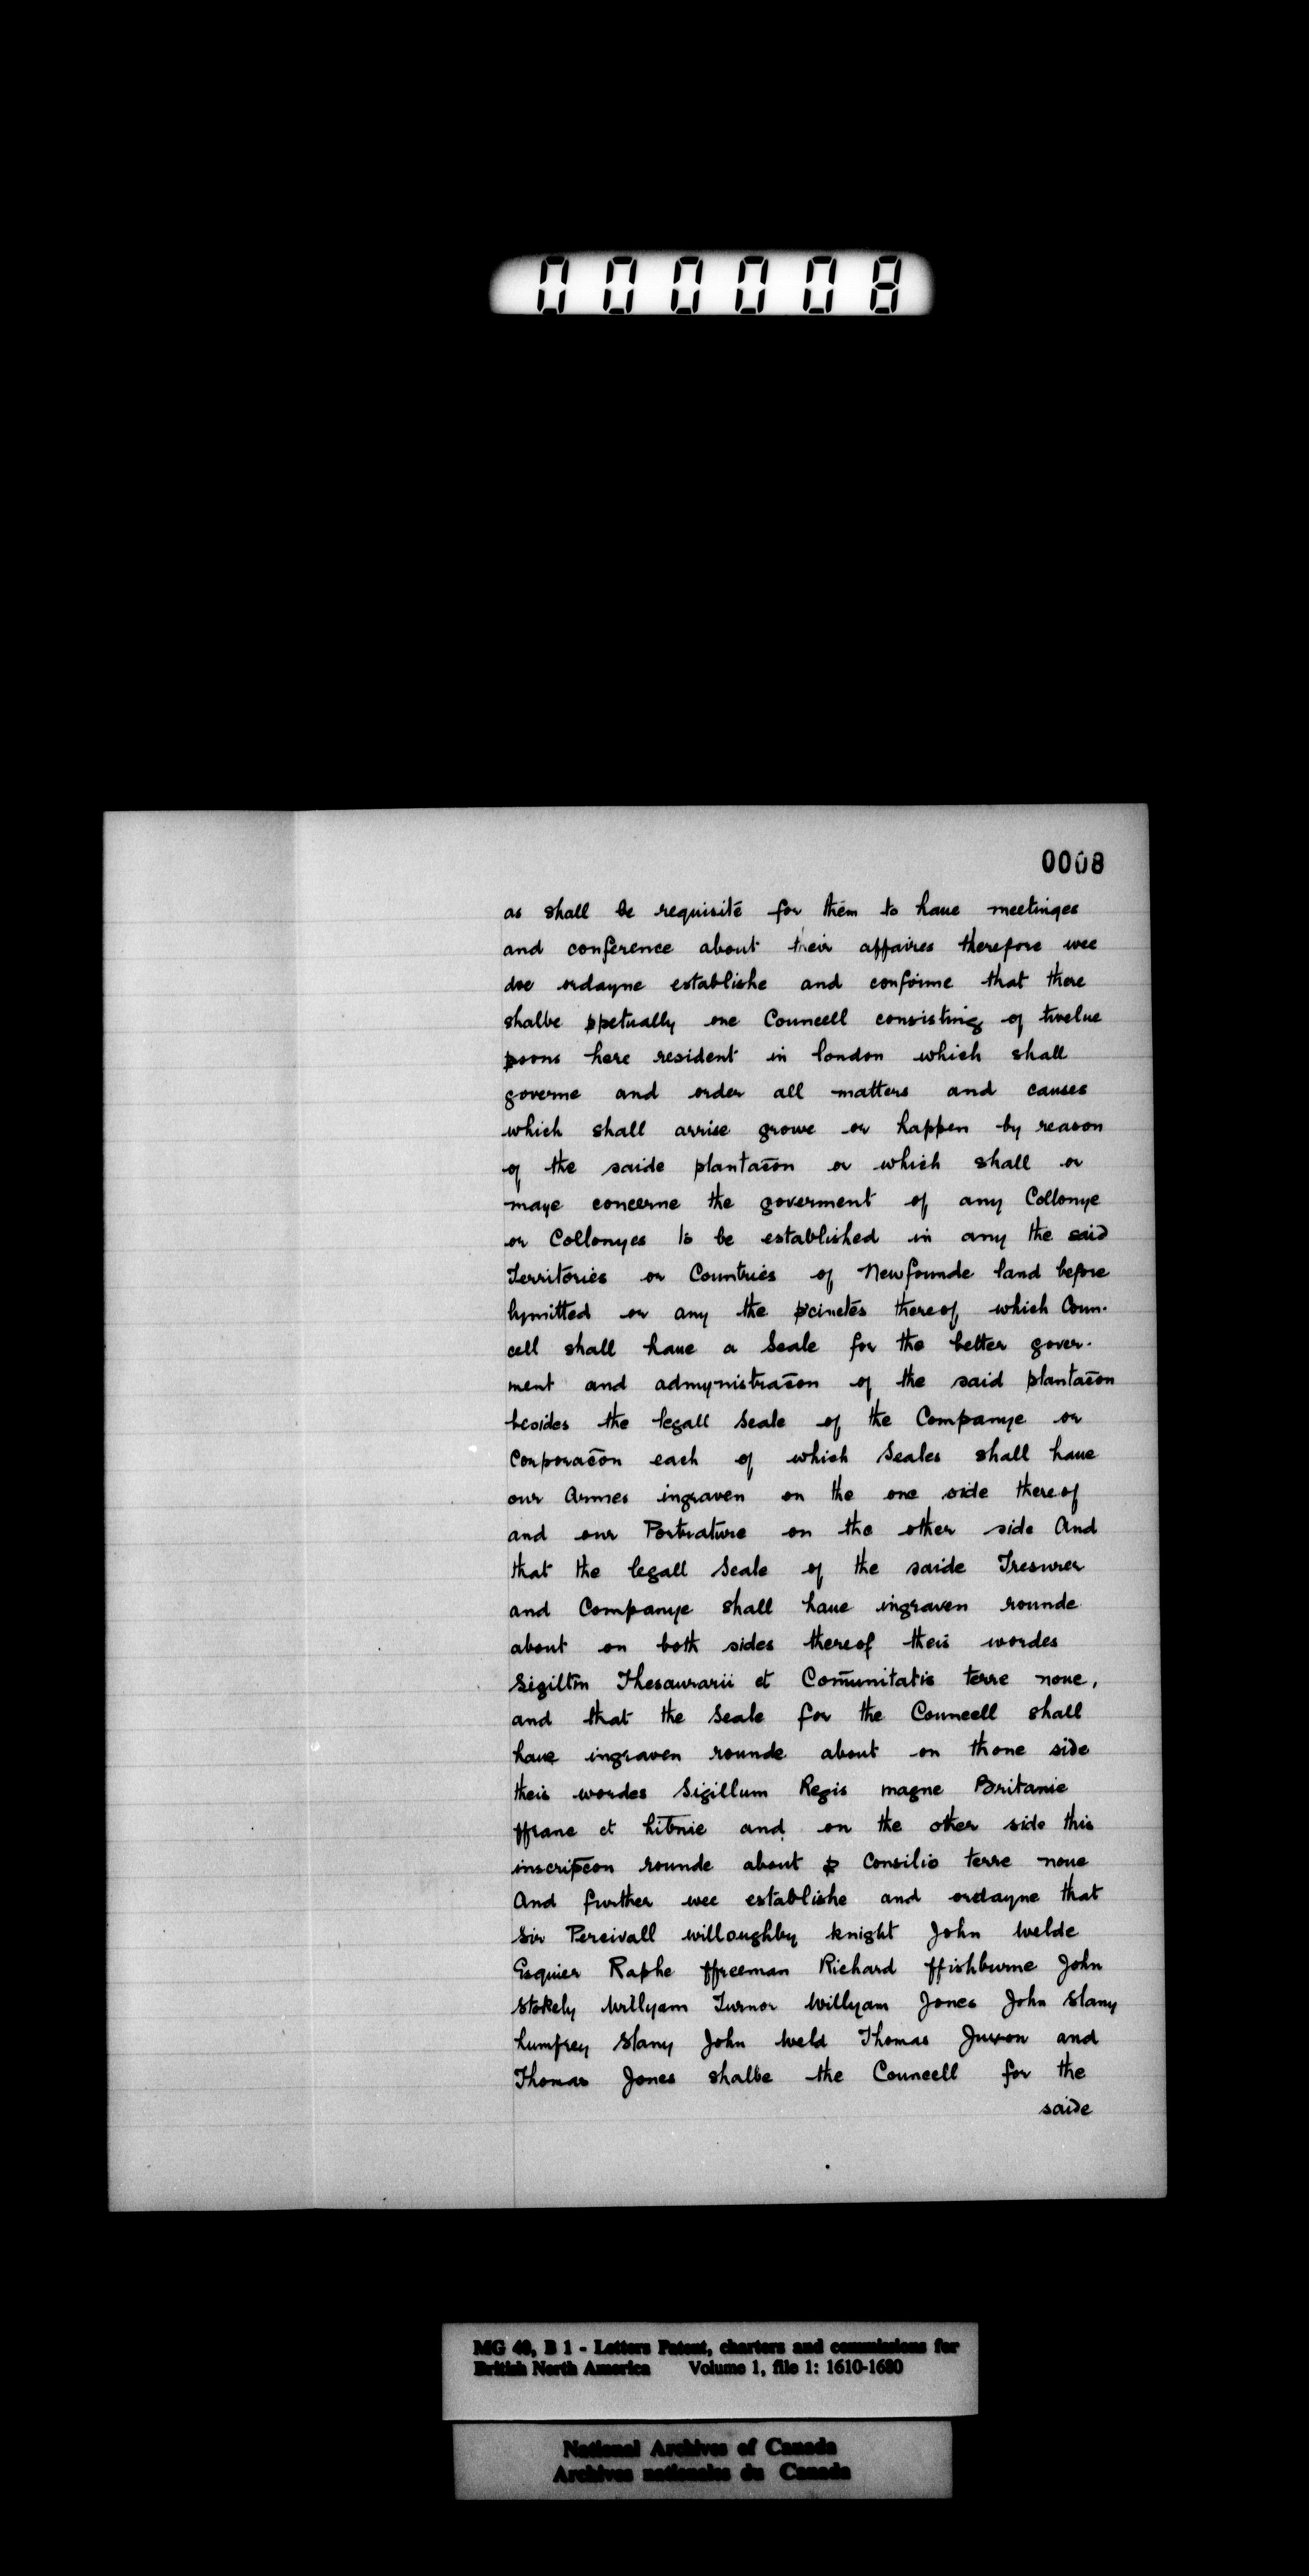 000008
0008
as shall be requisite for them to haue meetinges
and conference about their affaires therefore wee
doe ordayne establishe and confirme that there
shalbe ꝑpetually one Councell consisting of twelue
ꝑsons here resident in london which shall
governe and order all matters and causes
which shall arrise growe or happen by reason
of the saide plantac̄on or which shall or
maye concerne the goverment of any Collonye
or Collonyes to be established in any the said
Territories or Countries of Newfounde land before
lymitted or any the p'cinctes thereof which Coun-
cell shall haue a Seale for the better gover-
ment and admynistrac̄on of the said plantac̄on
besides the legall Seale of the Companye or
Corporac̄on each of which Seales shall haue
our Armes ingraven on the one side thereof
and our Portrature on the other side And
that the legall Seale of the saide Tresurer
and Companye shall haue ingraven rounde
about on both sides thereof theis wordes
Sigillm̄ Thesaurarii et Com̄unitatis terre noue,
and that the Seale for the Councell shall
haue ingraven rounde about on thone side
theis wordes Sigillum Regis magne Britanie
ffranc et hib̄nie and on the other side this
inscripc̄on rounde about ꝓ Consilio terre noue
And further wee establishe and ordayne that
Sir Percivall willoughby knight John Welde
Esquier Raphe ffreeman Richard ffishburne John
Stokely Willyam Turnor Willyam Jones John Slany
humfrey Slany John Weld Thomas Juxon and
Thomas Jones shalbe the Councell for the
saide
MG 40, B 1 - Letters Patent, charters and commissions for
British North America Volume 1, file 1: 1610-1680
National Archives of Canada
Archives nationales du Canada